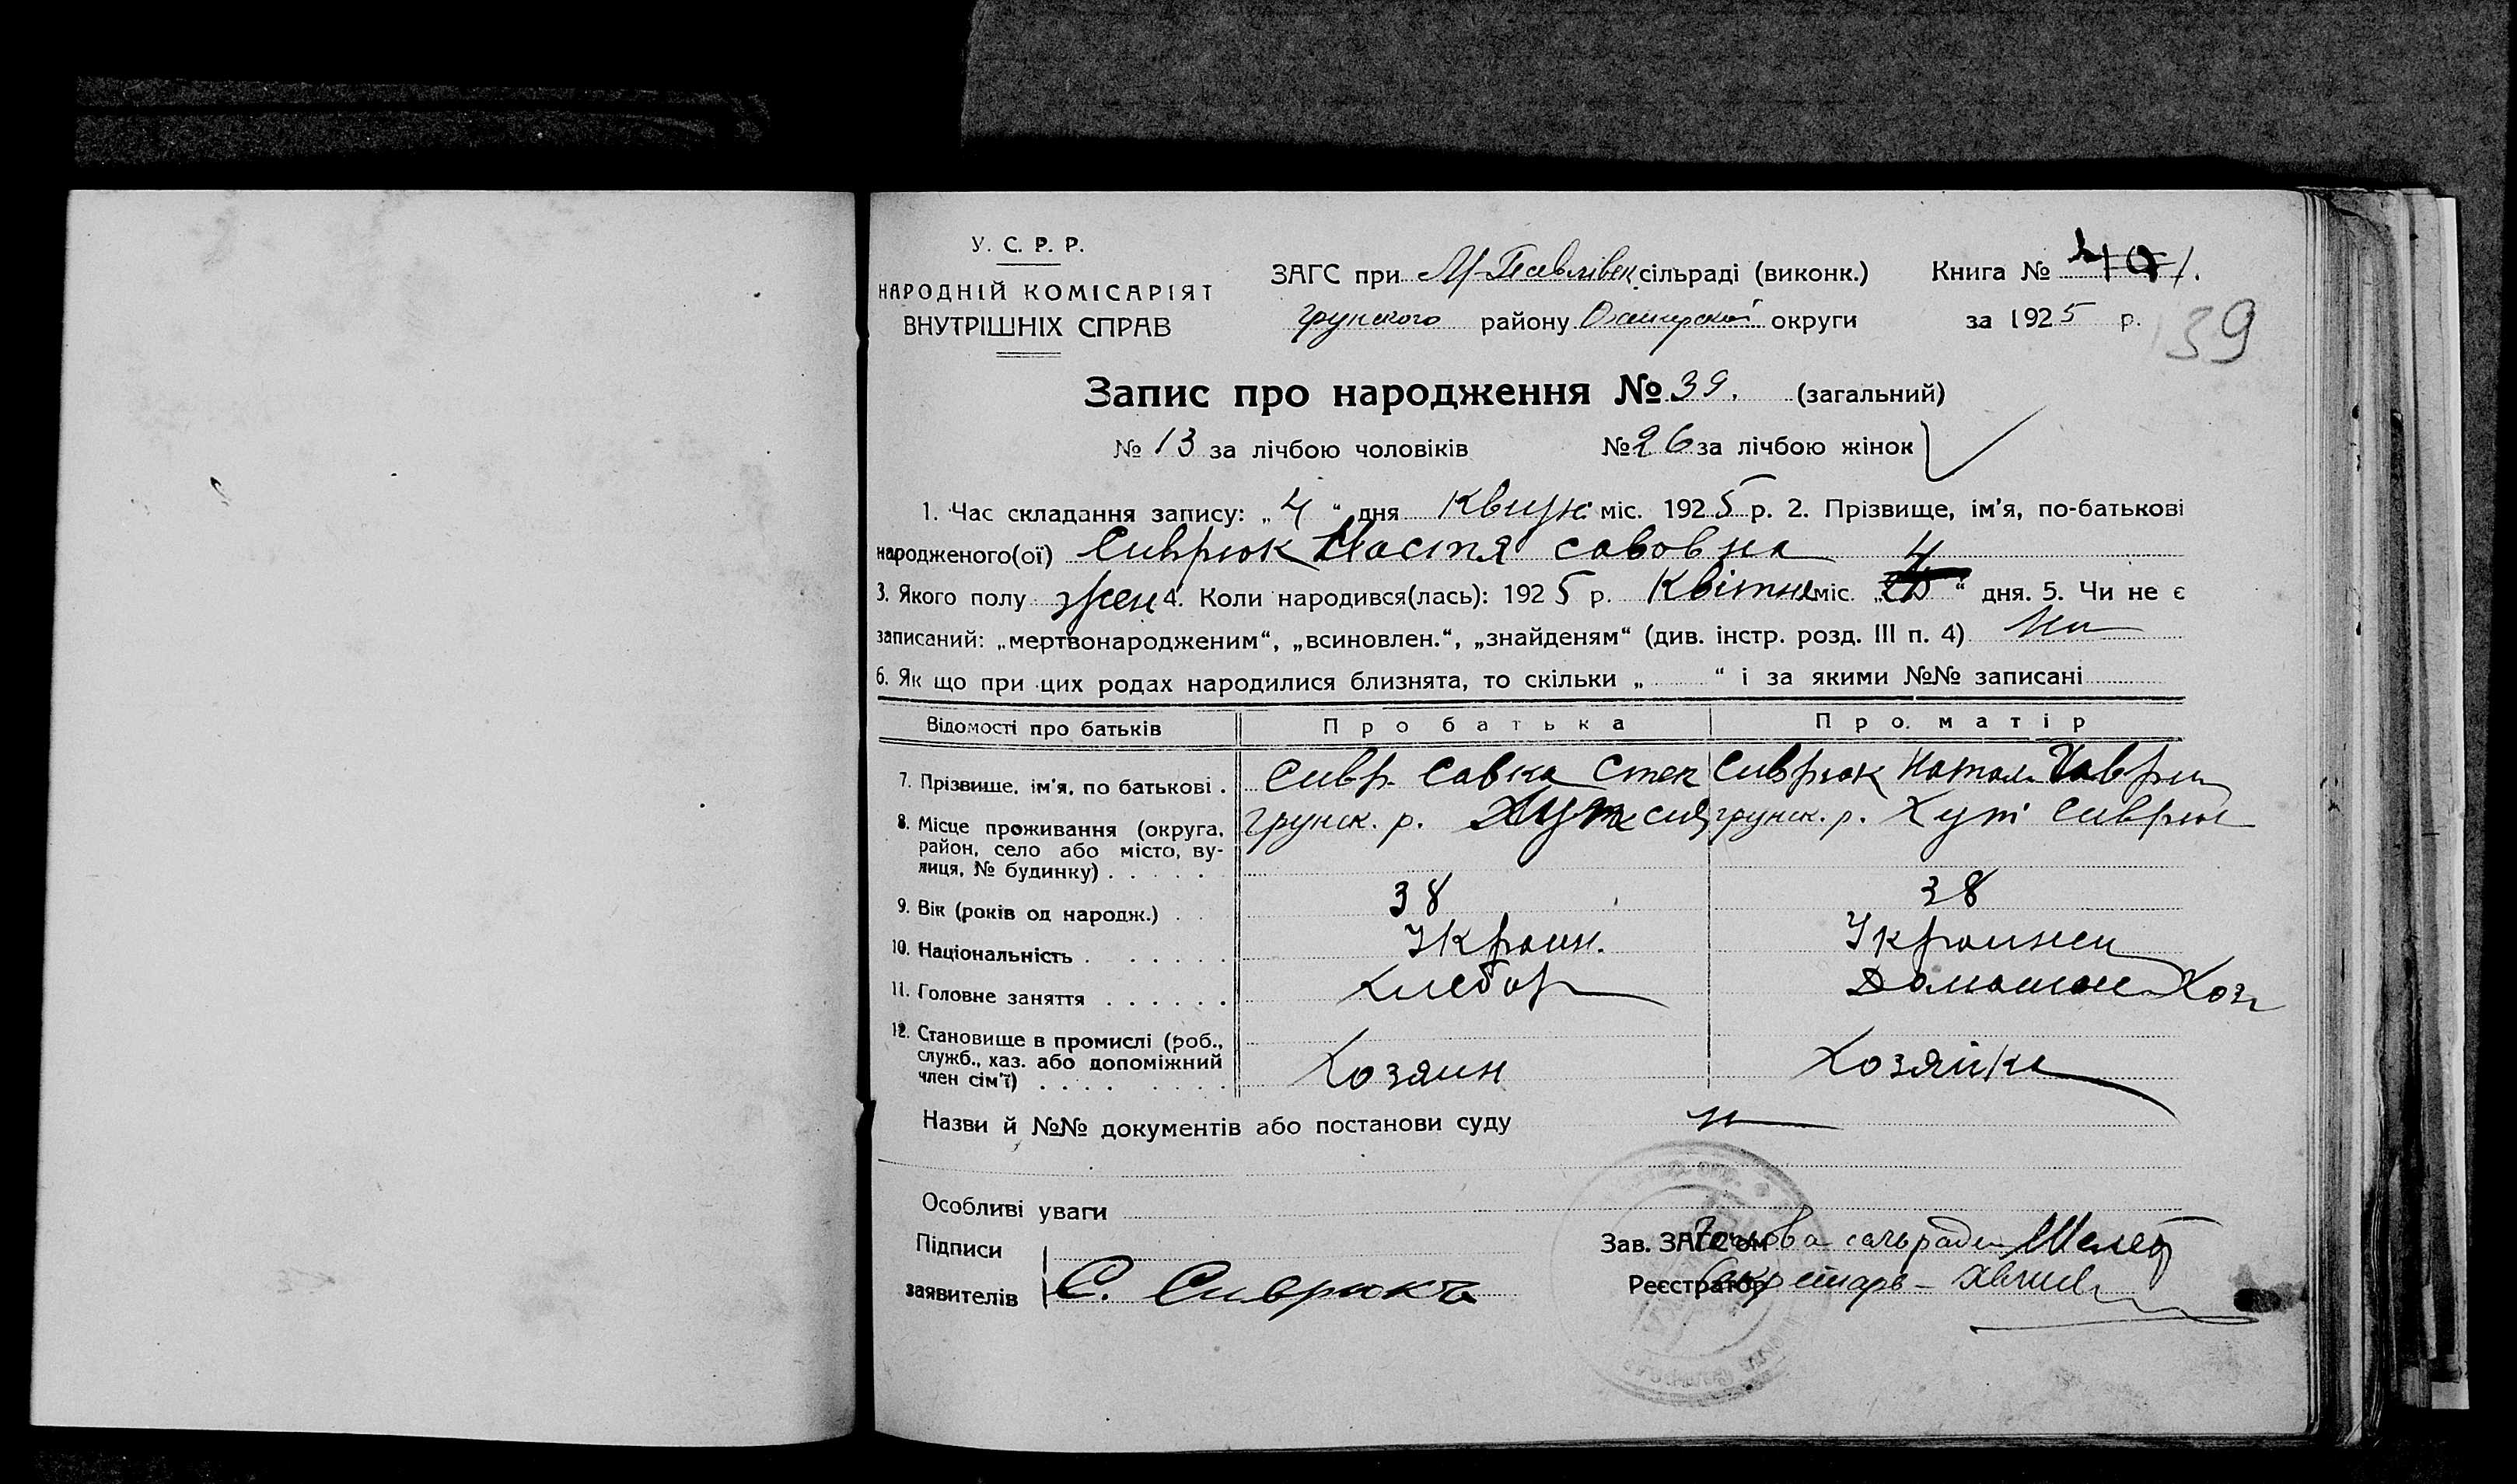 У. С. Р. Р.
НАРОДНІЙ КОМІСАРІЯТ
ВНУТРІШНІХ СПРАВ
ЗАГС при М-Павлівск сільраді (виконк.)
грунского району Охтирскої округи
Книга №
за 1925 р.
39
Запис про народження № 39. (загальний)
№ 13 за лічбою чоловіків № 26 за лічбою жінок
1. Час складання запису: „ 4 “ дня міс. 1925 р. 2. Прізвище, ім’я, по-батькові
народженого(ої) Сиврюк Настя Савовна
3. Якого полу жен 4. Коли народився(лась): 1925 р. Квітня міс. „ 4 “ дня. 5. Чи не є
записаний: „мертвонародженим“, „всиновлен.“, „знайденям“ (див. інстр. розд. III п. 4)
6. Як що при цих родах народилися близнята, то скільки „ “ і за якими №№ записані
Відомості про батьків Про батька Про матір
7. Прізвище, ім’я, по батькові . Сивр. Савка Степ Сиврюк Натал. Гаври
8. Місце проживання (округа, район, село або місто, вулиця, № будинку) . . . . . грунск. р. Хут грунск. р. Хут Сиврюк
9. Вік (років од народж.) . . 38 38
10. Національність . . . . . . Украин. Украинки
11. Головне заняття . . . . . . Хлебор Домашне Хоз
12. Становище в промислі (роб., служб., хаз. або допоміжний член сім’ї) . . . . Хозяин Хозяйка
Назви й №№ документів або постанови суду
Особливі уваги
Підписи
заявителів С. Сиврюкъ
Зав. ЗАГС’ом Голова сільради
Реєстратор Секретарь -